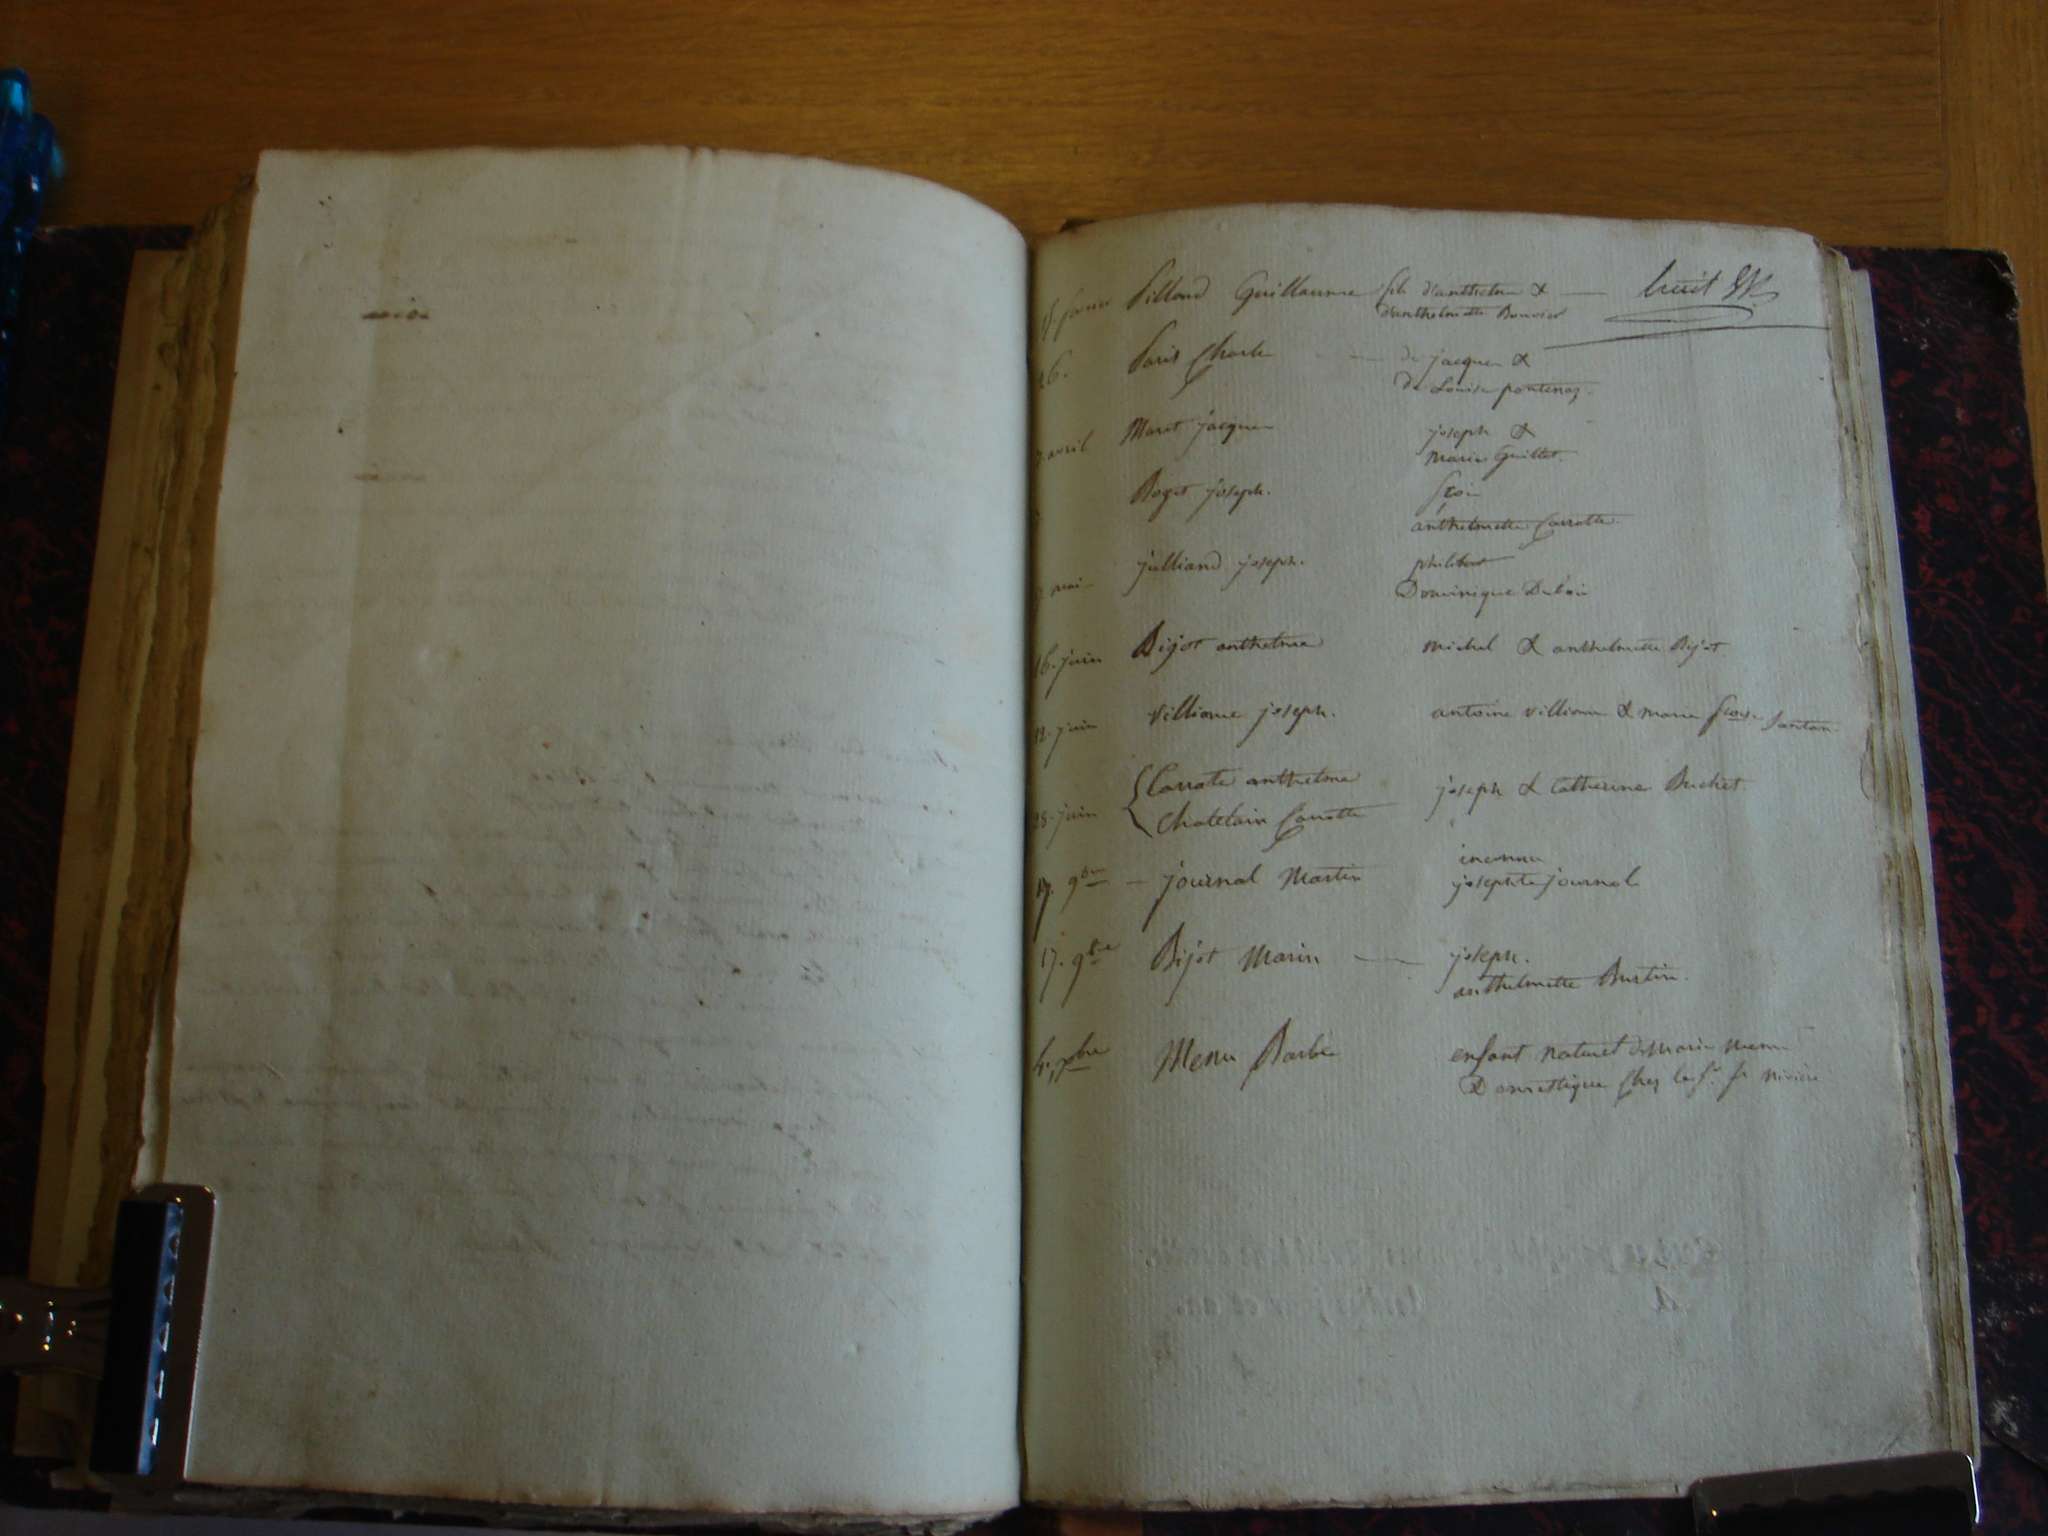 Pilland Guillaume fils d'anthelme & — huit
d'anthelmette Bouvier
26. Paris Charle — de jacque &
de Louise pontenaz
7. avril Maret jacque joseph &
Marie Guillet.
Boget joseph. frois
anthelmette Carrotte
7. mai julliand joseph. philibert
Dominique Duboin
16. juin Bijot anthelme Michel & anthelmette Bijot
12. juin Villiame joseph. antoine villiame & marie fcoise Santon
25. juin Carrote anthelme joseph & Catherine Buchet
Chatelain Carrotte
inconnu
17. 9bre — journal Martin josephte journal
17. 9bre Bijot Marin — joseph.
anthelmette Burtin.
4. xbre Menu Barbe enfant naturel de marie menu
Domestique chez le sr. Riviere